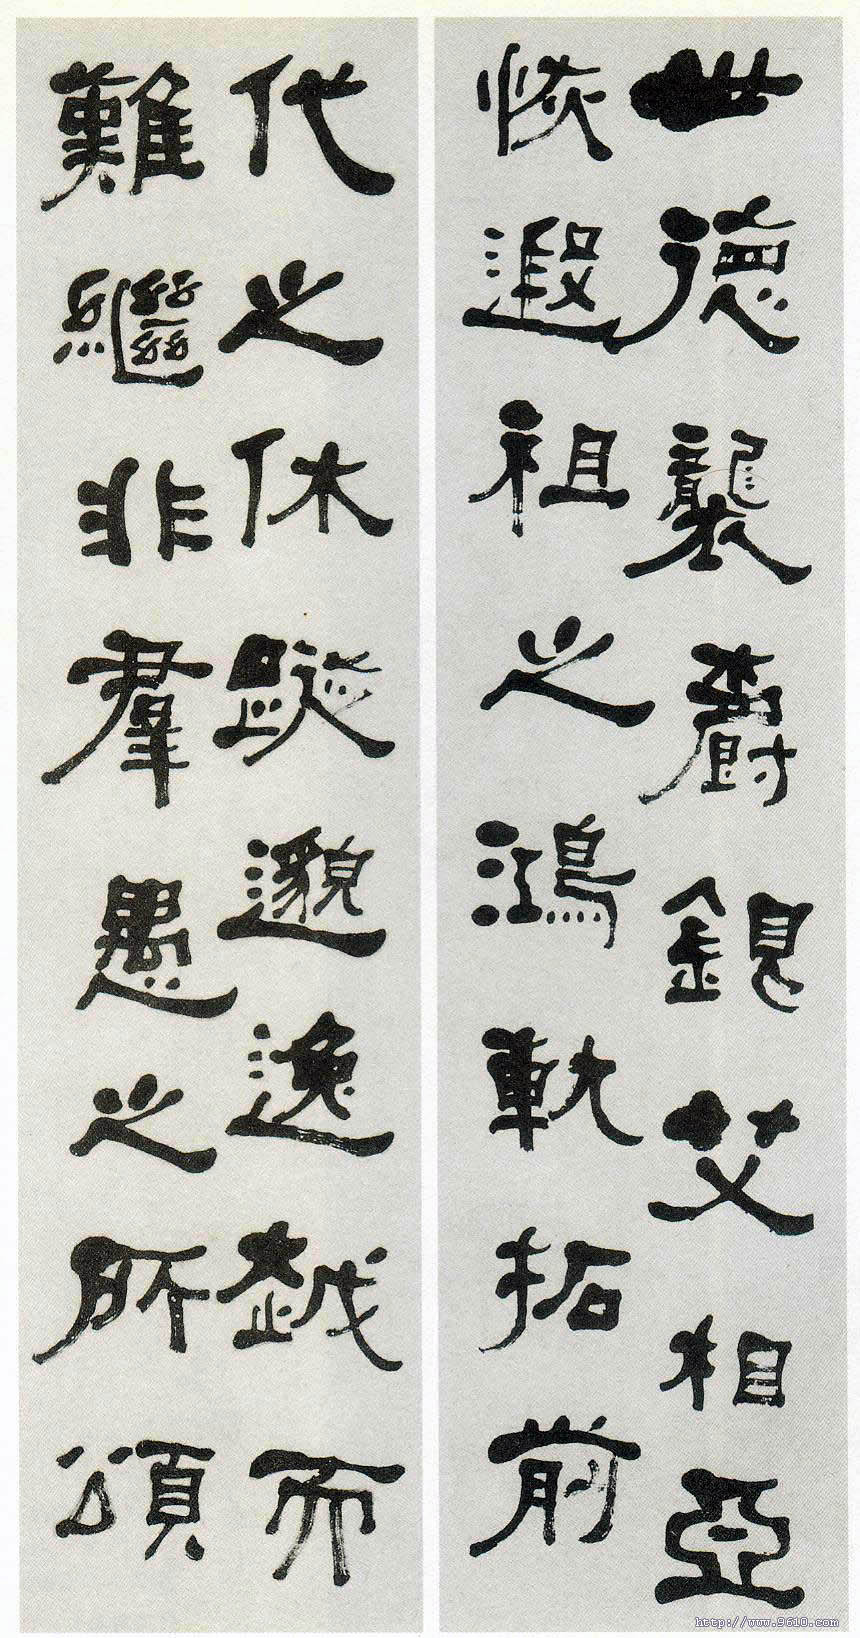 世德襲爵銀艾相亞
恢遐祖之鴻軌拓前
代之休蹤邈逸越而
難繼非羣愚之所頌
http://www.9610.com